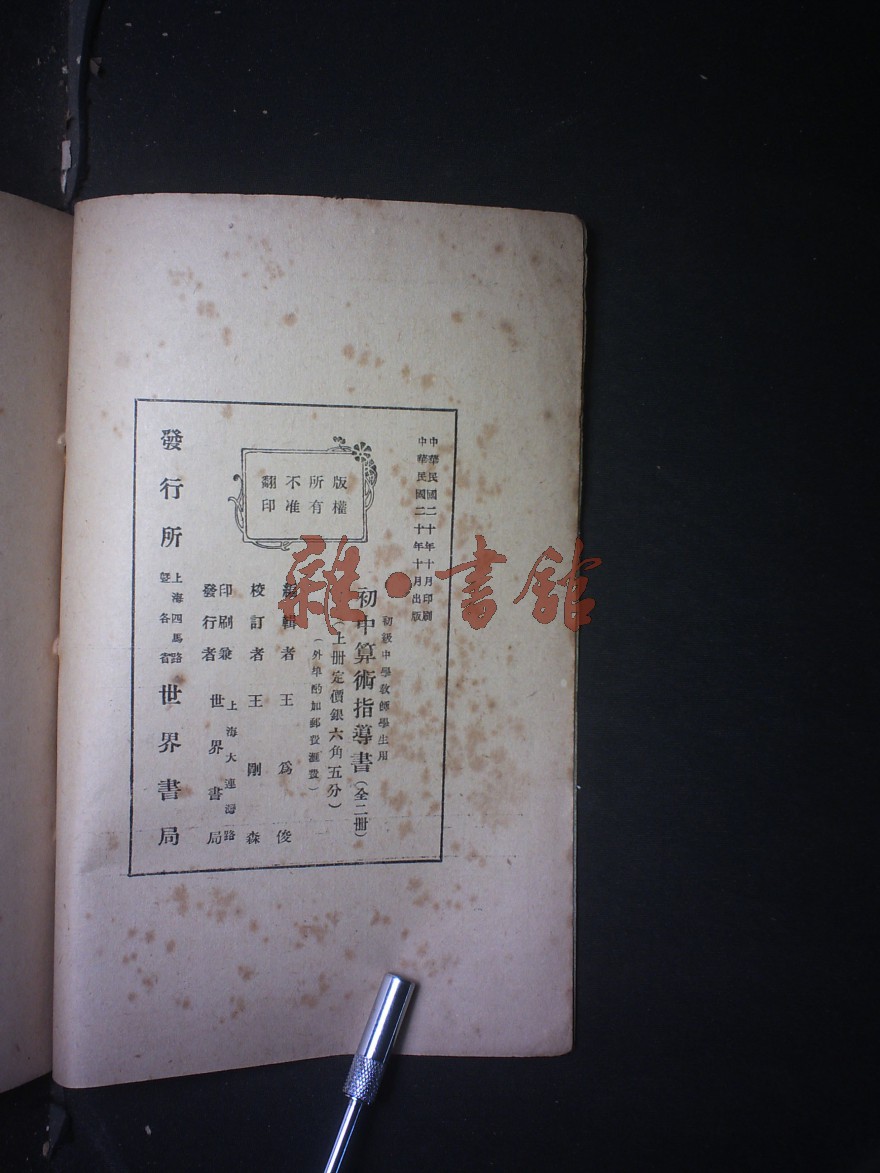 中華民國二十年十月印刷
中華民國二十年十月出版
初級中學教師學生用
初中算術指導書(全二冊)
(上冊定價銀六角五分)
(外埠酌加郵費滙費)
版權
所有
不准
翻印
編輯者 王為俊
校訂者 王剛森
印刷兼發行者 上海大連灣路 世界書局
發行所 上海四馬路暨各省 世界書局
雜·書館